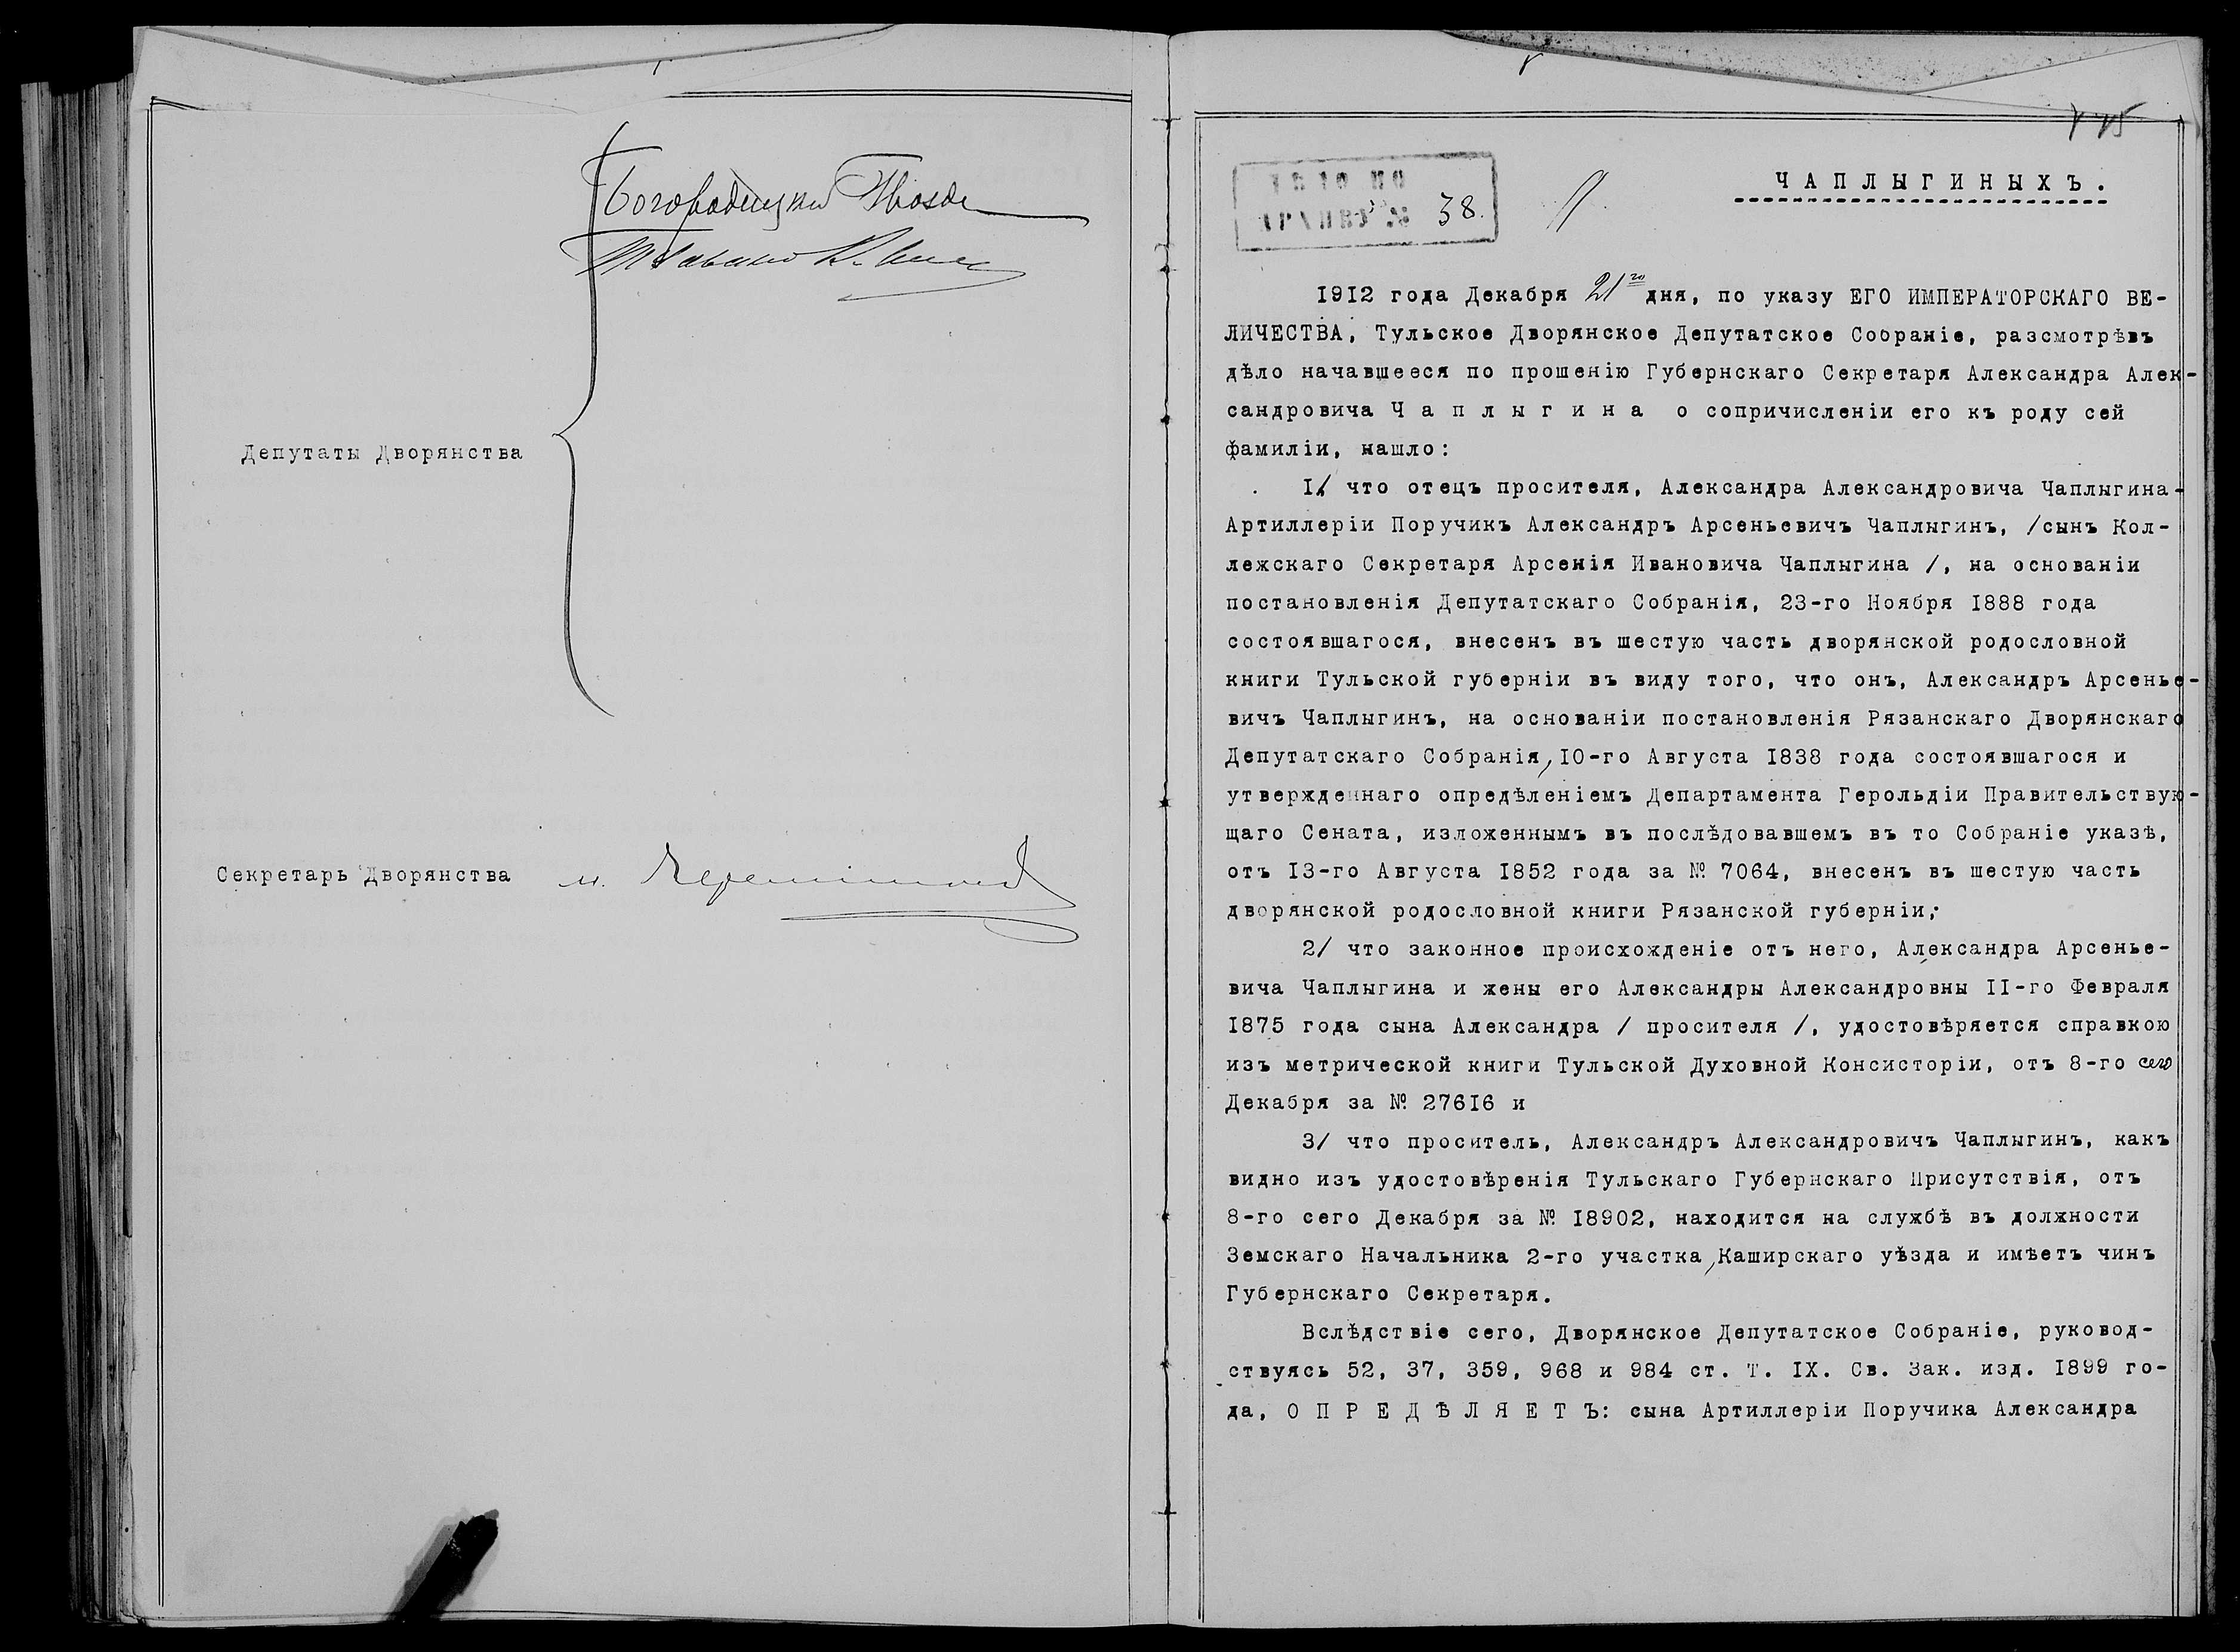 Депутаты Дворянства
Секретарь Дворянства
М.
ДѢЛО ПО
АРХИВУ № 38.
ЧАПЛЫГИНЫХЪ.
1912 года Декабря 21го дня, по указу ЕГО ИМПЕРАТОРСКАГО ВЕ-
ЛИЧЕСТВА, Тульское Дворянское Депутатское Собраніе, разсмотрѣвъ
дѣло начавшееся по прошенію Губернскаго Секретаря Александра Алек-
сандровича Ч а п л ы г и н а о сопричисленіи его къ роду сей
фамиліи, нашло:
1/ что отецъ просителя, Александра Александровича Чаплыгина-
Артиллеріи Поручикъ Александръ Арсеньевичъ Чаплыгинъ, /сынъ Кол-
лежскаго Секретаря Арсенія Ивановича Чаплыгина /, на основаніи
постановленія Депутатскаго Собранія, 23-го Ноября 1888 года
состоявшагося, внесенъ въ шестую часть дворянской родословной
книги Тульской губерніи въ виду того, что онъ, Александръ Арсенье-
вичъ Чаплыгинъ, на основаніи постановленія Рязанскаго Дворянскаго
Депутатскаго Собранія, 10-го Августа 1838 года состоявшагося и
утвержденнаго опредѣленіемъ Департамента Герольдіи Правительствую-
щаго Сената, изложеннымъ въ послѣдовавшемъ въ то Собраніе указѣ,
отъ 13-го Августа 1852 года за № 7064, внесенъ въ шестую часть
дворянской родословной книги Рязанской губерніи;
2/ что законное происхожденіе отъ него, Александра Арсенье-
вича Чаплыгина и жены его Александры Александровны 11-го Февраля
1875 года сына Александра / просителя /, удостовѣряется справкою
изъ метрической книги Тульской Духовной Консисторіи, отъ 8-го сего
Декабря за № 27616 и
3/ что проситель, Александръ Александровичъ Чаплыгинъ, какъ
видно изъ удостовѣренія Тульскаго Губернскаго Присутствія, отъ
8-го сего Декабря за № 18902, находится на службѣ въ должности
Земскаго Начальника 2-го участка, Каширскаго уѣзда и имѣетъ чинъ
Губернскаго Секретаря.
Вслѣдствіе сего, Дворянское Депутатское Собраніе, руковод-
ствуясь 52, 37, 359, 968 и 984 ст. Т. IX. Св. Зак. изд. 1899 го-
да, О П Р Е Д Ѣ Л Я Е Т Ъ: сына Артиллеріи Поручика Александра